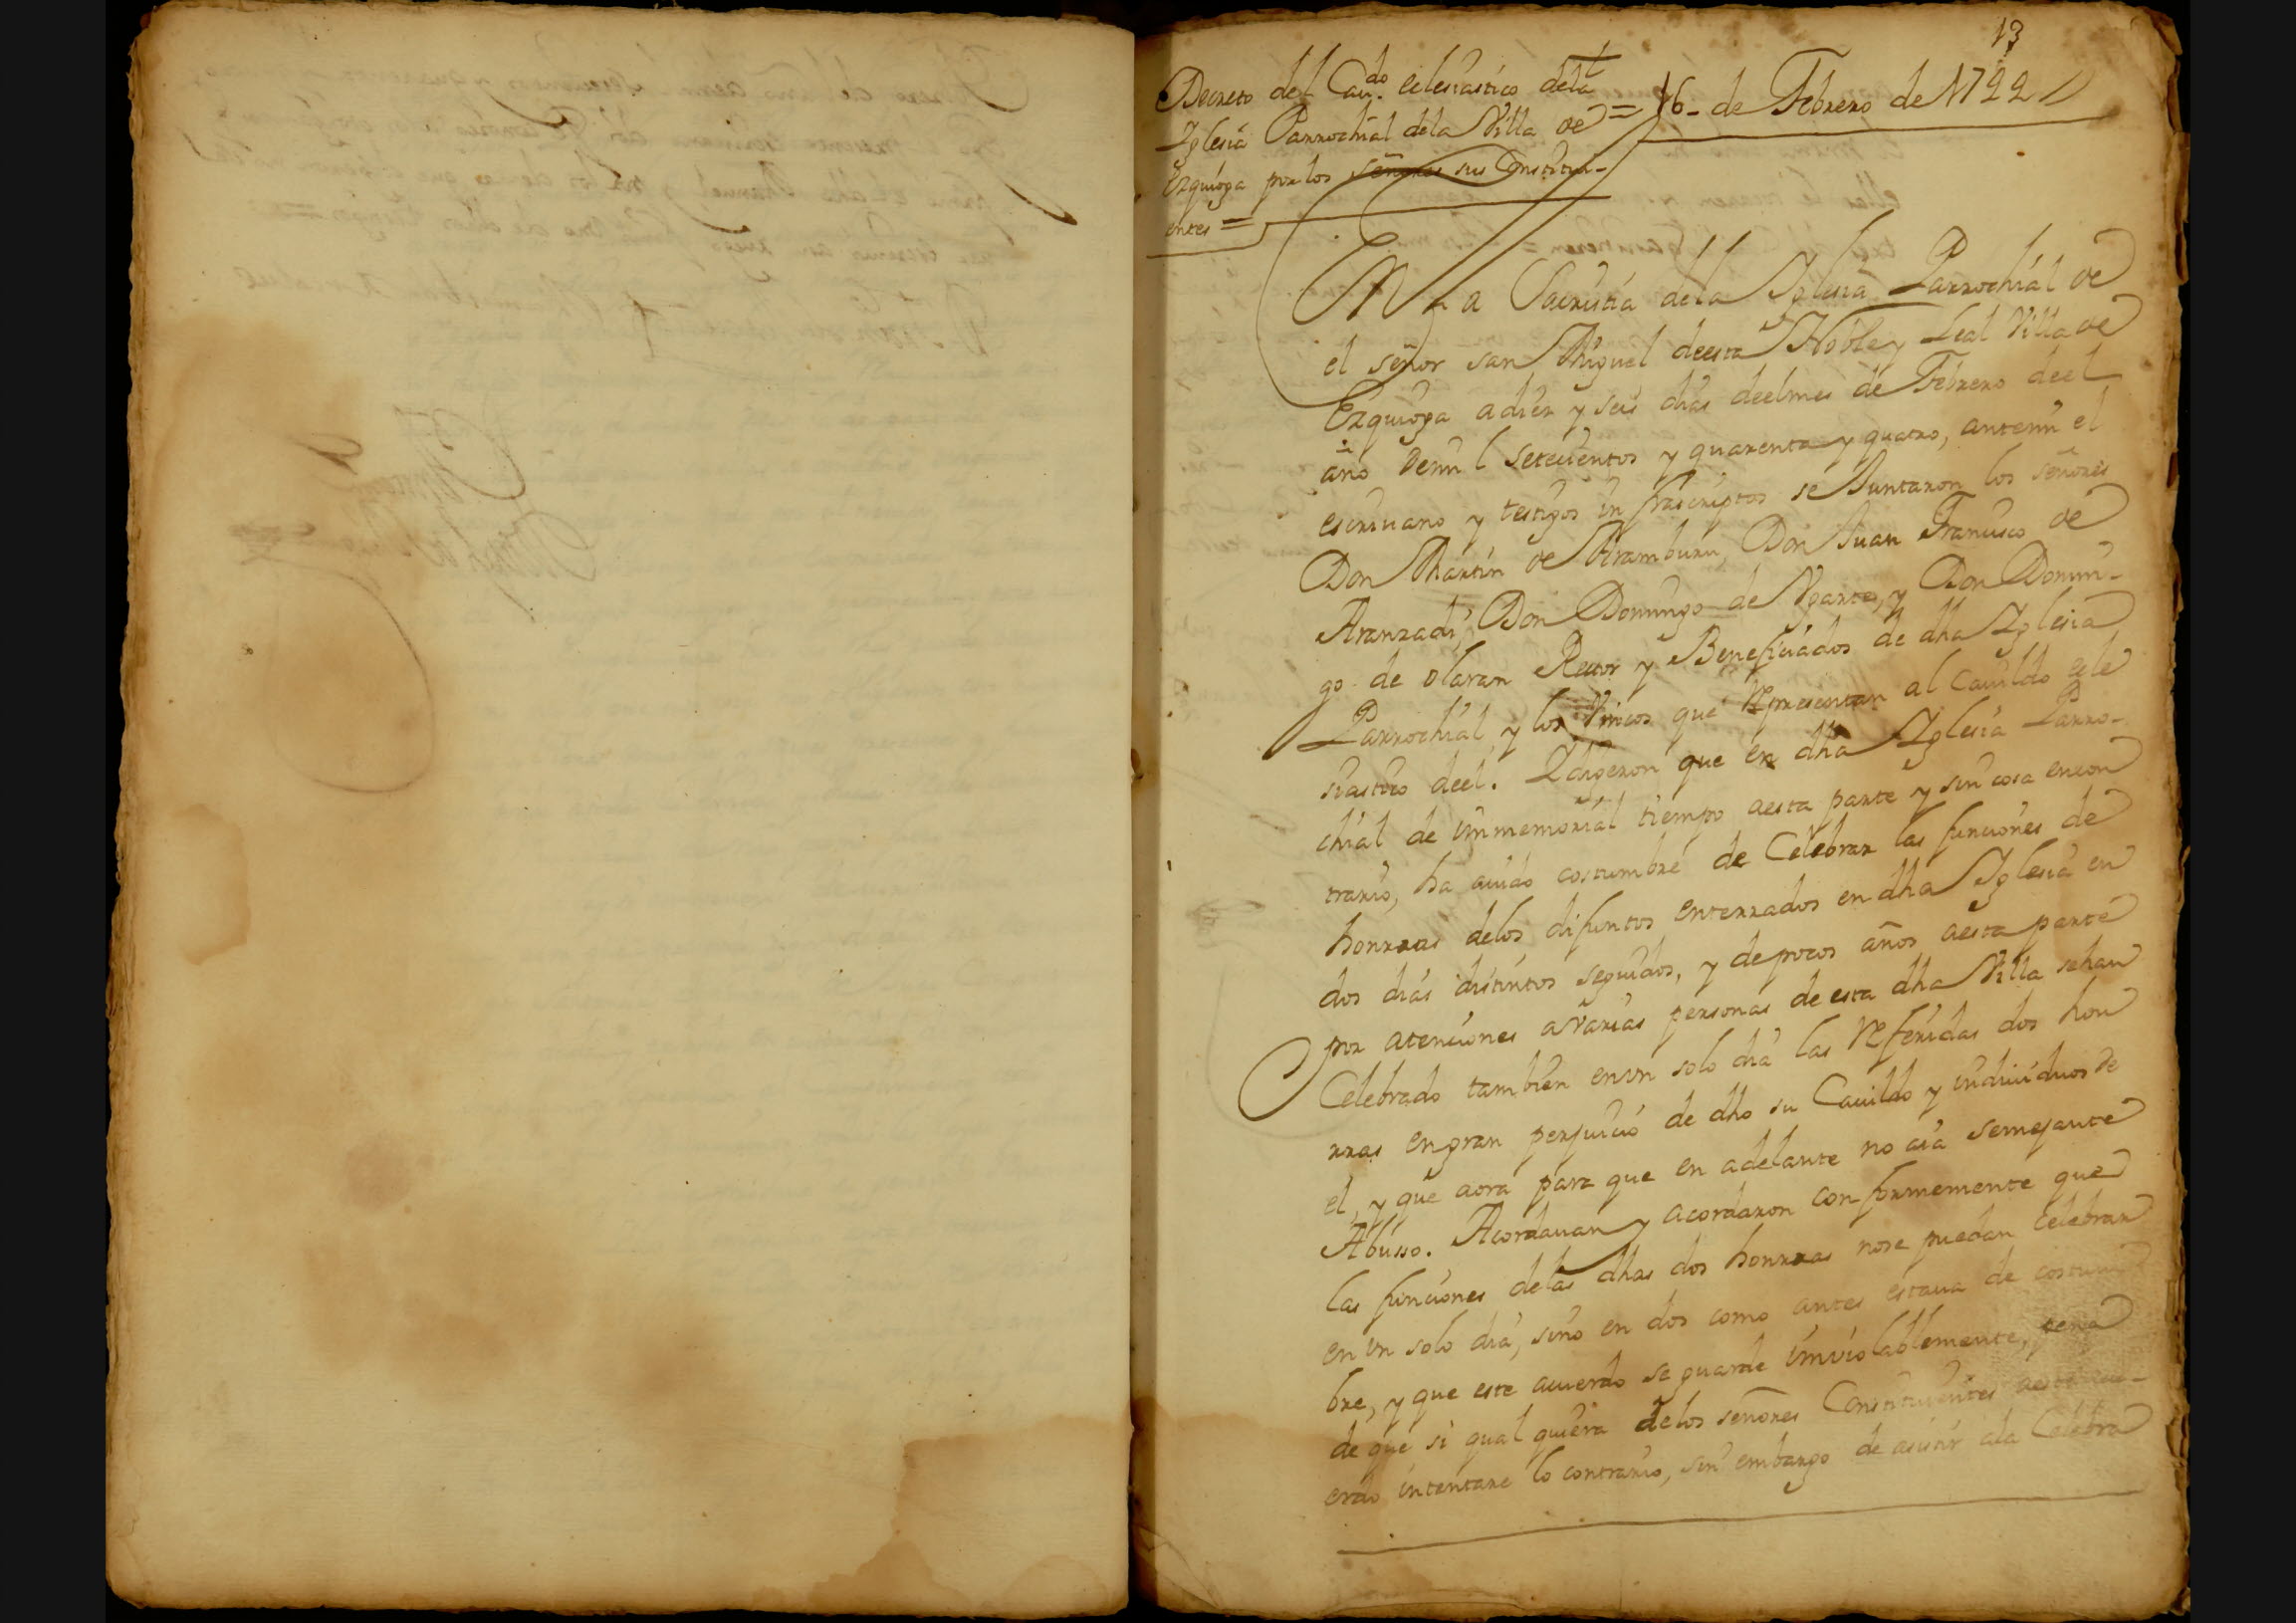 13
Decreto del Cau.do eclesiastico dela
Iglesia Parrochial dela Villa de =
Ezquioga por los señores sus Constitui-
entes =
16 - de Febrero de 1744 //
En La Sacristia dela Iglesia Parrochial de
el señor san Miguel deesta Noble y Leal Villa de
Ezquioga a diez y seis dias deelmes de Febrero deel
año demil setecientos y quarenta y quatro, antemi el
escriuano y testigos infrascriptos se Juntaron los señores
Don Martin de Aramburu, Don Juan Francisco de
Aranzadi, Don Domingo de Ugarte, y Don Domin-
go de olaran Rector y Beneficiados de dha Iglesia
Parrochial y los Vnicos que Representan al Cauildo ecle
siastico deel. Y digeron que en dha Iglesia Parro-
chial de immemorial tiempo aesta parte y sin cosa encon
trario, ha auido costumbre de Celebrar las funciones de
honrras delos difuntos enterrados en dha Iglesia en
dos dias distintos seguidos, y depocos años aesta parte
por atenciones avarias personas de esta dha Villa sehan
Celebrado tambien envn solo dia las Referidas dos hon
rras engran perjuicio de dho su Cauildo y indiuiduos de
el, y que aora para que en adelante no aia semejante
Abusso. Acordauan y acordaron conformemente que
las funciones delas dhas dos honrras nose puedan celebrar
en vn solo dia, sino en dos como antes estaua de costum
bre, y que este acuerdo se guarde imviolablemente, pena
de que si qual quiera delos señores Constituientes aeste acu-
erdo intentare lo contrario, sin embargo de asistir ala Celebra